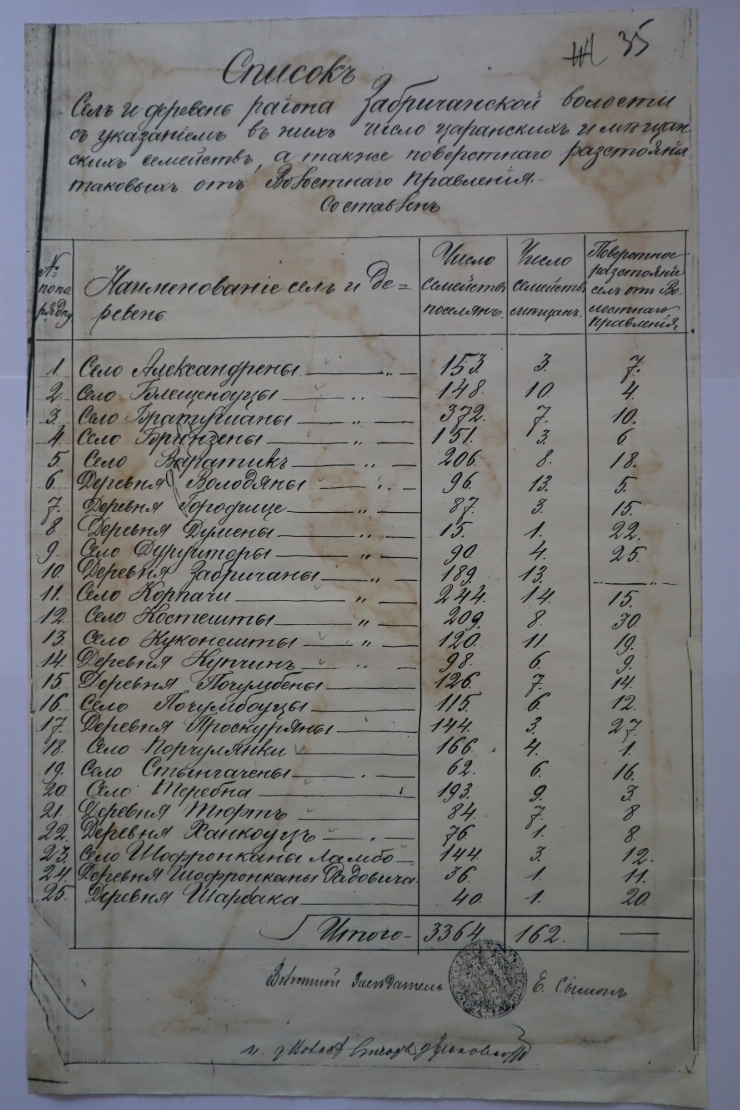 35
Списокъ
Селъ и деревень района Забричанской волости
съ указаніемъ въ нихъ число царанскихъ и мѣщан-
скихъ семействъ, а также поверстнаго разстоянія
таковыхъ отъ Волостнаго Правленія.
Составленъ
№ по порядку | Наименованіе селъ и Де=ревень | Число Семействъ поселянъ. | Число Семействъ мѣщанъ. | Поверстное разстояніе селъ отъ Волостнаго Правленія.
1. Село Александрены — „ — 153. 3. 7.
2. Село Блещеноуцы — „ — 148. 10. 4.
3. Село Братушаны — „ — 372. 7. 10.
4. Село Бринзены — „ — 151. 3. 6
5. Село Варатикъ — „ — 206. 8. 18.
6. Деревня Володяны — „ — 96. 13. 5.
7. Деревня Городище — „ — 87. 3. 15.
8 Деревня Думены — „ — 15. 1. 22.
9. Село Дуруиторы — „ — 90. 4. 25.
10. Деревня Забричаны — „ — 189. 13. —
11. Село Корпачи — „ — 244. 14. 15.
12. Село Костешты — „ — 209. 8. 30
13. Село Куконешты — „ — 120. 11. 19.
14. Деревня Купчинъ — „ — 98. 6. 9.
15. Деревня Почумбены — 126. 7. 14.
16. Село Почумбоуцы — 115. 6 12.
17. Деревня Проскуряны — 144. 3. 27.
18. Село Порчулянки — 166. 4. 1.
19. Село Стынгачены — 62. 6. 16.
20 Село Теребна — 193. 9. 3.
21. Деревня Тюртъ — 84. 7. 8
22. Деревня Ханкоуцъ — 76 1. 8.
23. Село Шофронканы Ламбо — 144. 3. 12.
24. Деревня Шофронканы Радовича 36 1. 11.
25. Деревня Шарбака — 40. 1. 20.
Итого — 3364. 162. —
Волостной Засѣдатель Е. Сымонъ